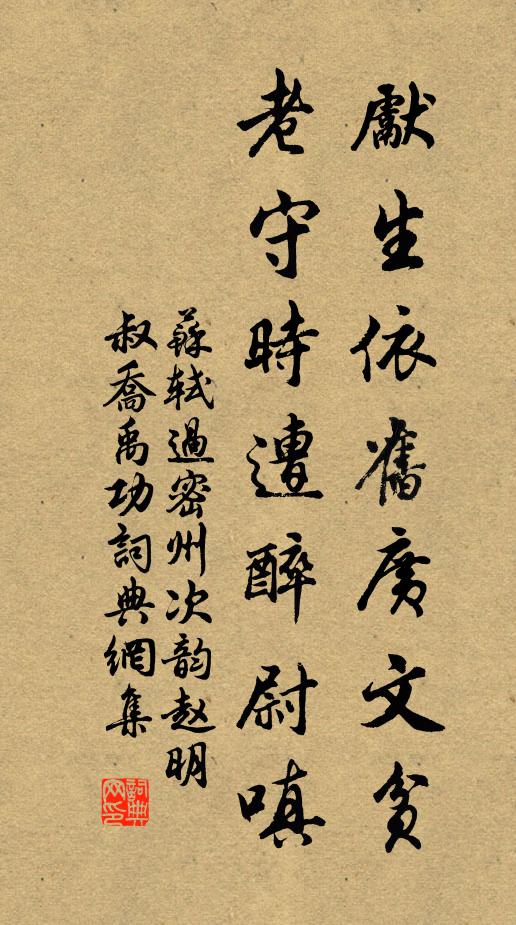 獻生依舊廣文貧
老守時遭醉尉嗔
蘇軾過密州次韵赵明
叔喬禹功詞典網集
詞典网印